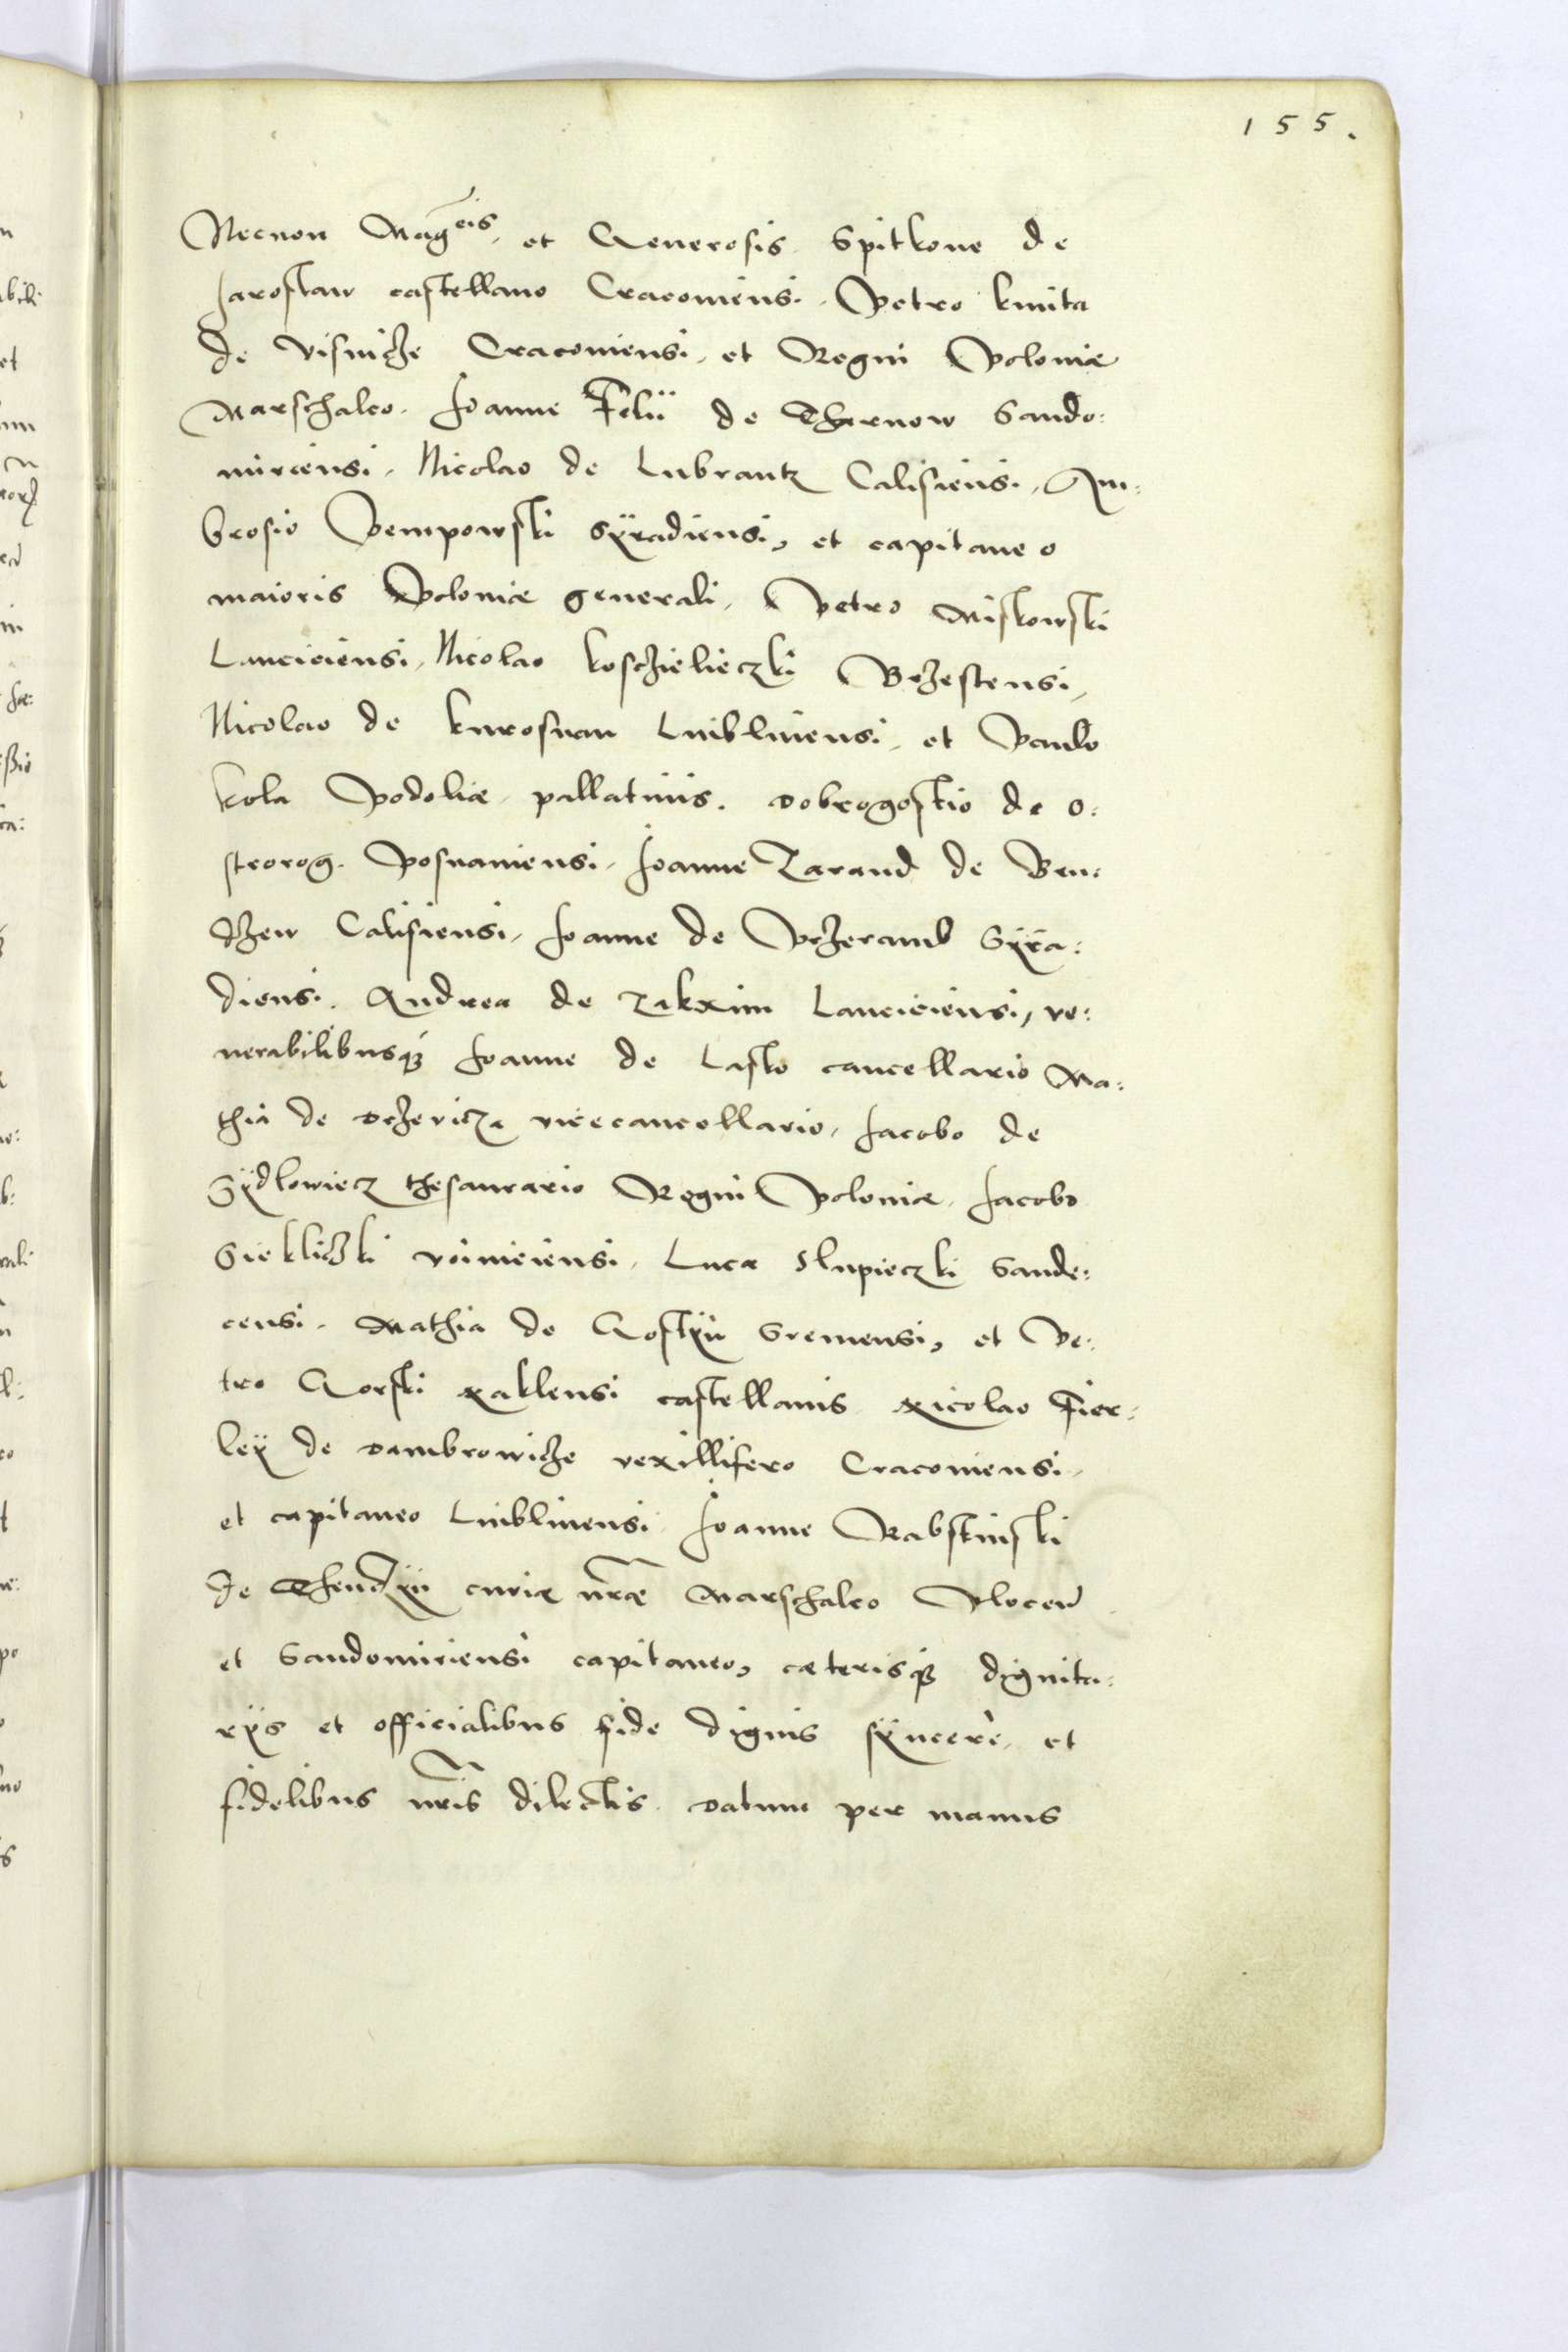 155.
Necnon Mag̃eis, et Generosis Spitkone de
Jaroslaw castellano Cracoviensi, Petro kmita
de Visnicze Cracoviensi, et Regni Poloniæ
Marschalco. Joanne Felü de Tharnow Sando:
miriensi, Nicolao de Lubrantz Calisiensi, Am:
brosio Pempowski sÿradiensi, et capitaneo
maioris Poloniæ generali, Petro Miskowski
Lanciciensi, Nicolao koschielieczki Brzestensi,
Nicolao de kurosvan Lubliniensi, et Paulo
kola Podoliæ pallatinis. Dobrogostio de O:
strorog. Posnaniensi, Joanne Zarand de Bru:
dzew Calisiensi, Joanne de Przeramb Sÿra:
diensi. Andrea de Zakxim Lanciciensi, ve:
nerabilibusq́ʒ Joanne de Lasko cancellario Ma:
thia de Drzevicza vicecancellario, Jacobo de
Sÿdlowiecz thesaurario Regni Poloniæ, Jacobo
Siekliczki voiniciensi, Lucæ Slupieczki Sande:
censi. Mathia de Gostÿn Sremensi, et Pe:
tro Gorski Naklensi castellanis Nicolao Fier:
leÿ de Dambrowicze vexillifero Cracoviensi,
et capitaneo Lublinensi Joanne Rabstinski
de Thendzÿn curiæ nr̃æ Marschalco Plocen̄
et Sandomiriensi capitaneo, cæterisqʒ dignita:
rÿs et officialibus fide dignis sÿncerè, et
fidelibus nr̃is dilectis. Datum per manus